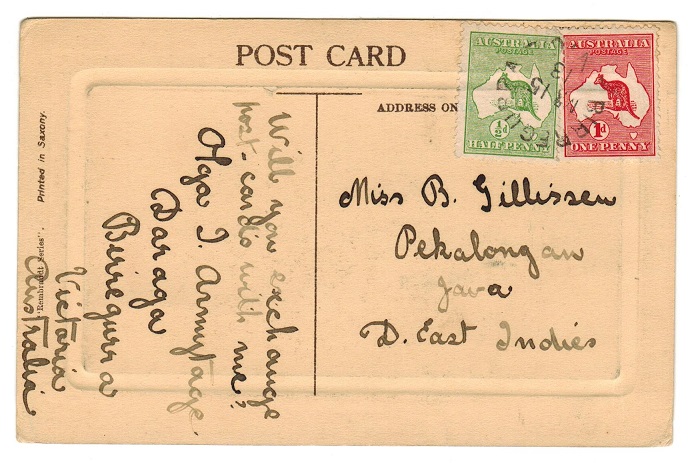 POST CARD
ADDRESS ON
AUSTRALIA
POSTAGE
½d
HALF PENNY
AUSTRALIA
POSTAGE
1d
ONE PENNY
BIRREGURRA
15
13
Miss B. Gillissen
Pekalongan
Java
D. East Indies
Will you exchange
post-cards with me?
Olga I. Armytage
Daraga
Birregurra
Victoria
Australia
Printed in Saxony.
"Rembrandt Series".